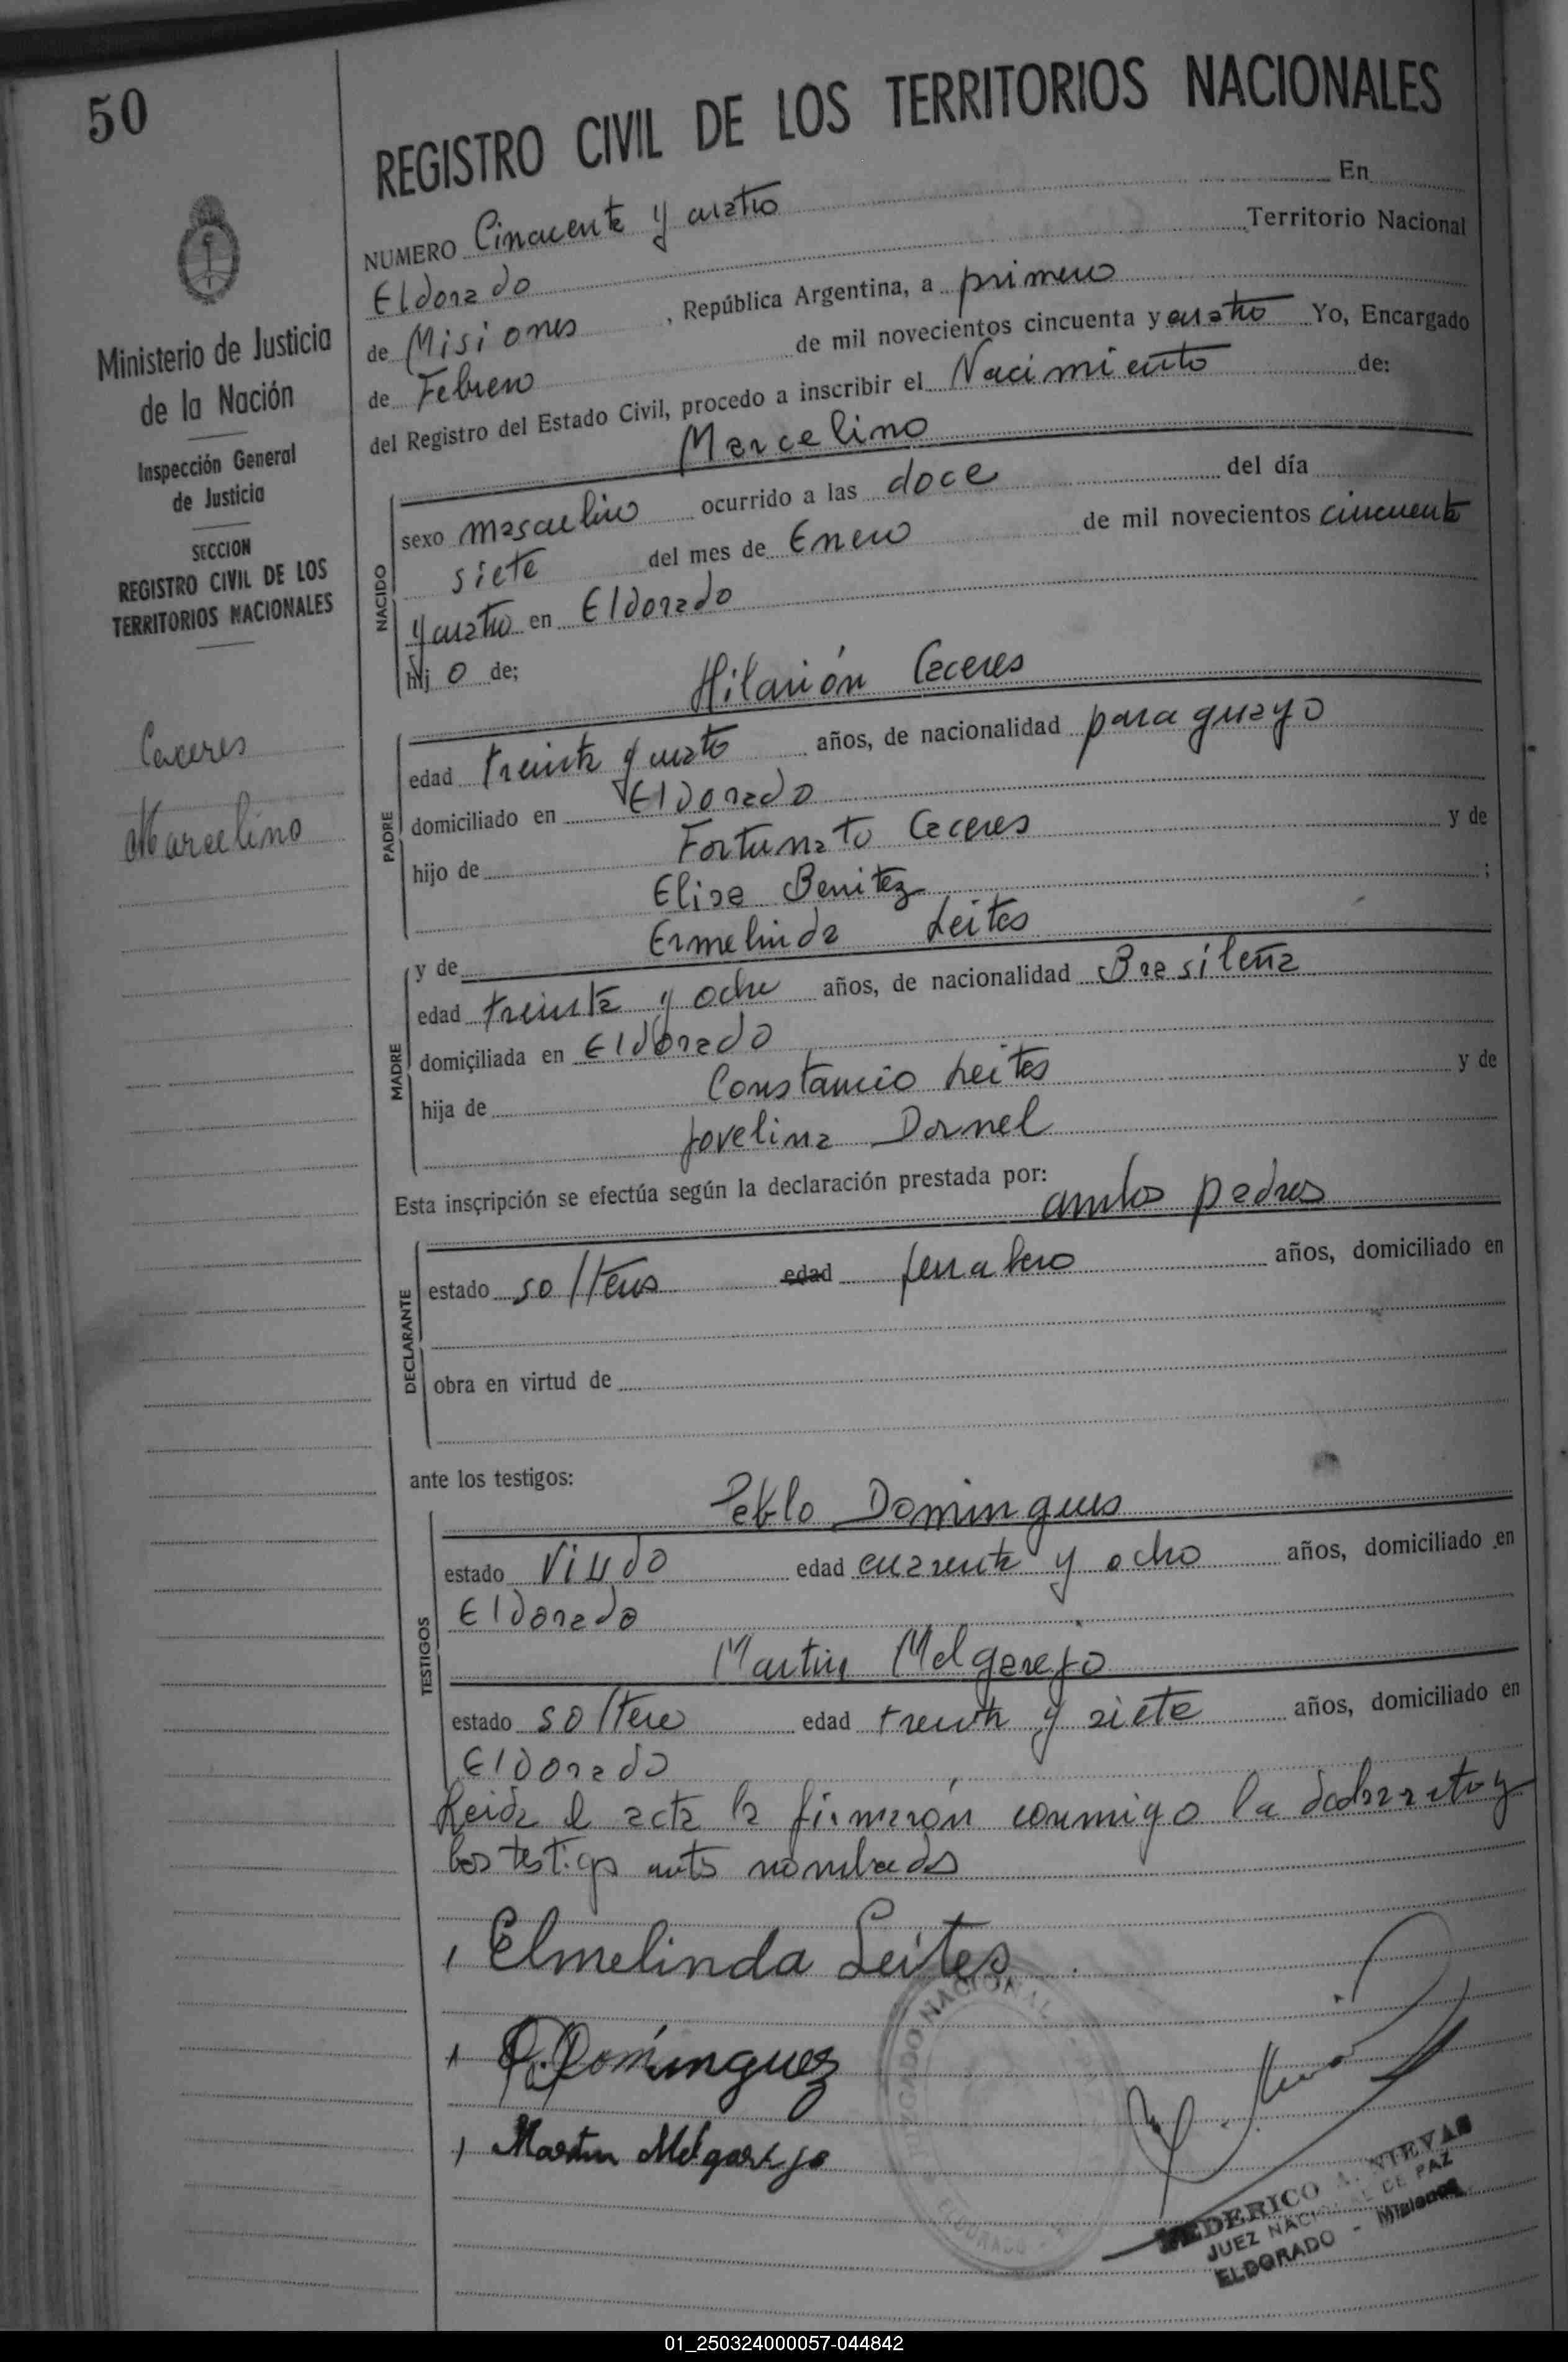 50
REGISTRO CIVIL DE LOS TERRITORIOS NACIONALES
Ministerio de Justicia
de la Nación
Inspección General
de Justicia
SECCION
REGISTRO CIVIL DE LOS
TERRITORIOS NACIONALES
Caceres
Marcelino
NUMERO Cincuenta y cuatro En
Eldorado Territorio Nacional
de Misiones , República Argentina, a primero
de Febrero de mil novecientos cincuenta y cuatro Yo, Encargado
del Registro del Estado Civil, procedo a inscribir el Nacimiento de:
Marcelino
NACIDO
sexo masculino ocurrido a las doce del día
siete del mes de Enero de mil novecientos cincuenta
y cuatro en Eldorado
hij o de;
Hilarión Caceres
PADRE
edad treinta y cuatro años, de nacionalidad paraguayo
domiciliado en Eldorado
hijo de Fortunato Caceres y de
Elisa Benitez ;
y de Ermelinda Leites
MADRE
edad treinta y ocho años, de nacionalidad Brasileña
domiciliada en Eldorado
hija de Constancio Leites y de
Jovelina Dornel
Esta inscripción se efectúa según la declaración prestada por:
ambos padres
DECLARANTE
estado solteros edad jornalero años, domiciliado en
obra en virtud de
ante los testigos:
Pablo Domingues
TESTIGOS
estado Viudo edad cuarenta y ocho años, domiciliado en
Eldorado
Martin Melgarejo
estado soltero edad treinta y siete años, domiciliado en
Eldorado
Leida el acta la firmarón conmigo la declarante y
los testigos antes nombrados
Elmelinda Leites
P. Domínguez
Martin Melgarejo
JUZGADO NACIONAL
ELDORADO
FEDERICO A. NIEVAS
JUEZ NACIONAL DE PAZ
ELDORADO - Misiones
01_250324000057-044842